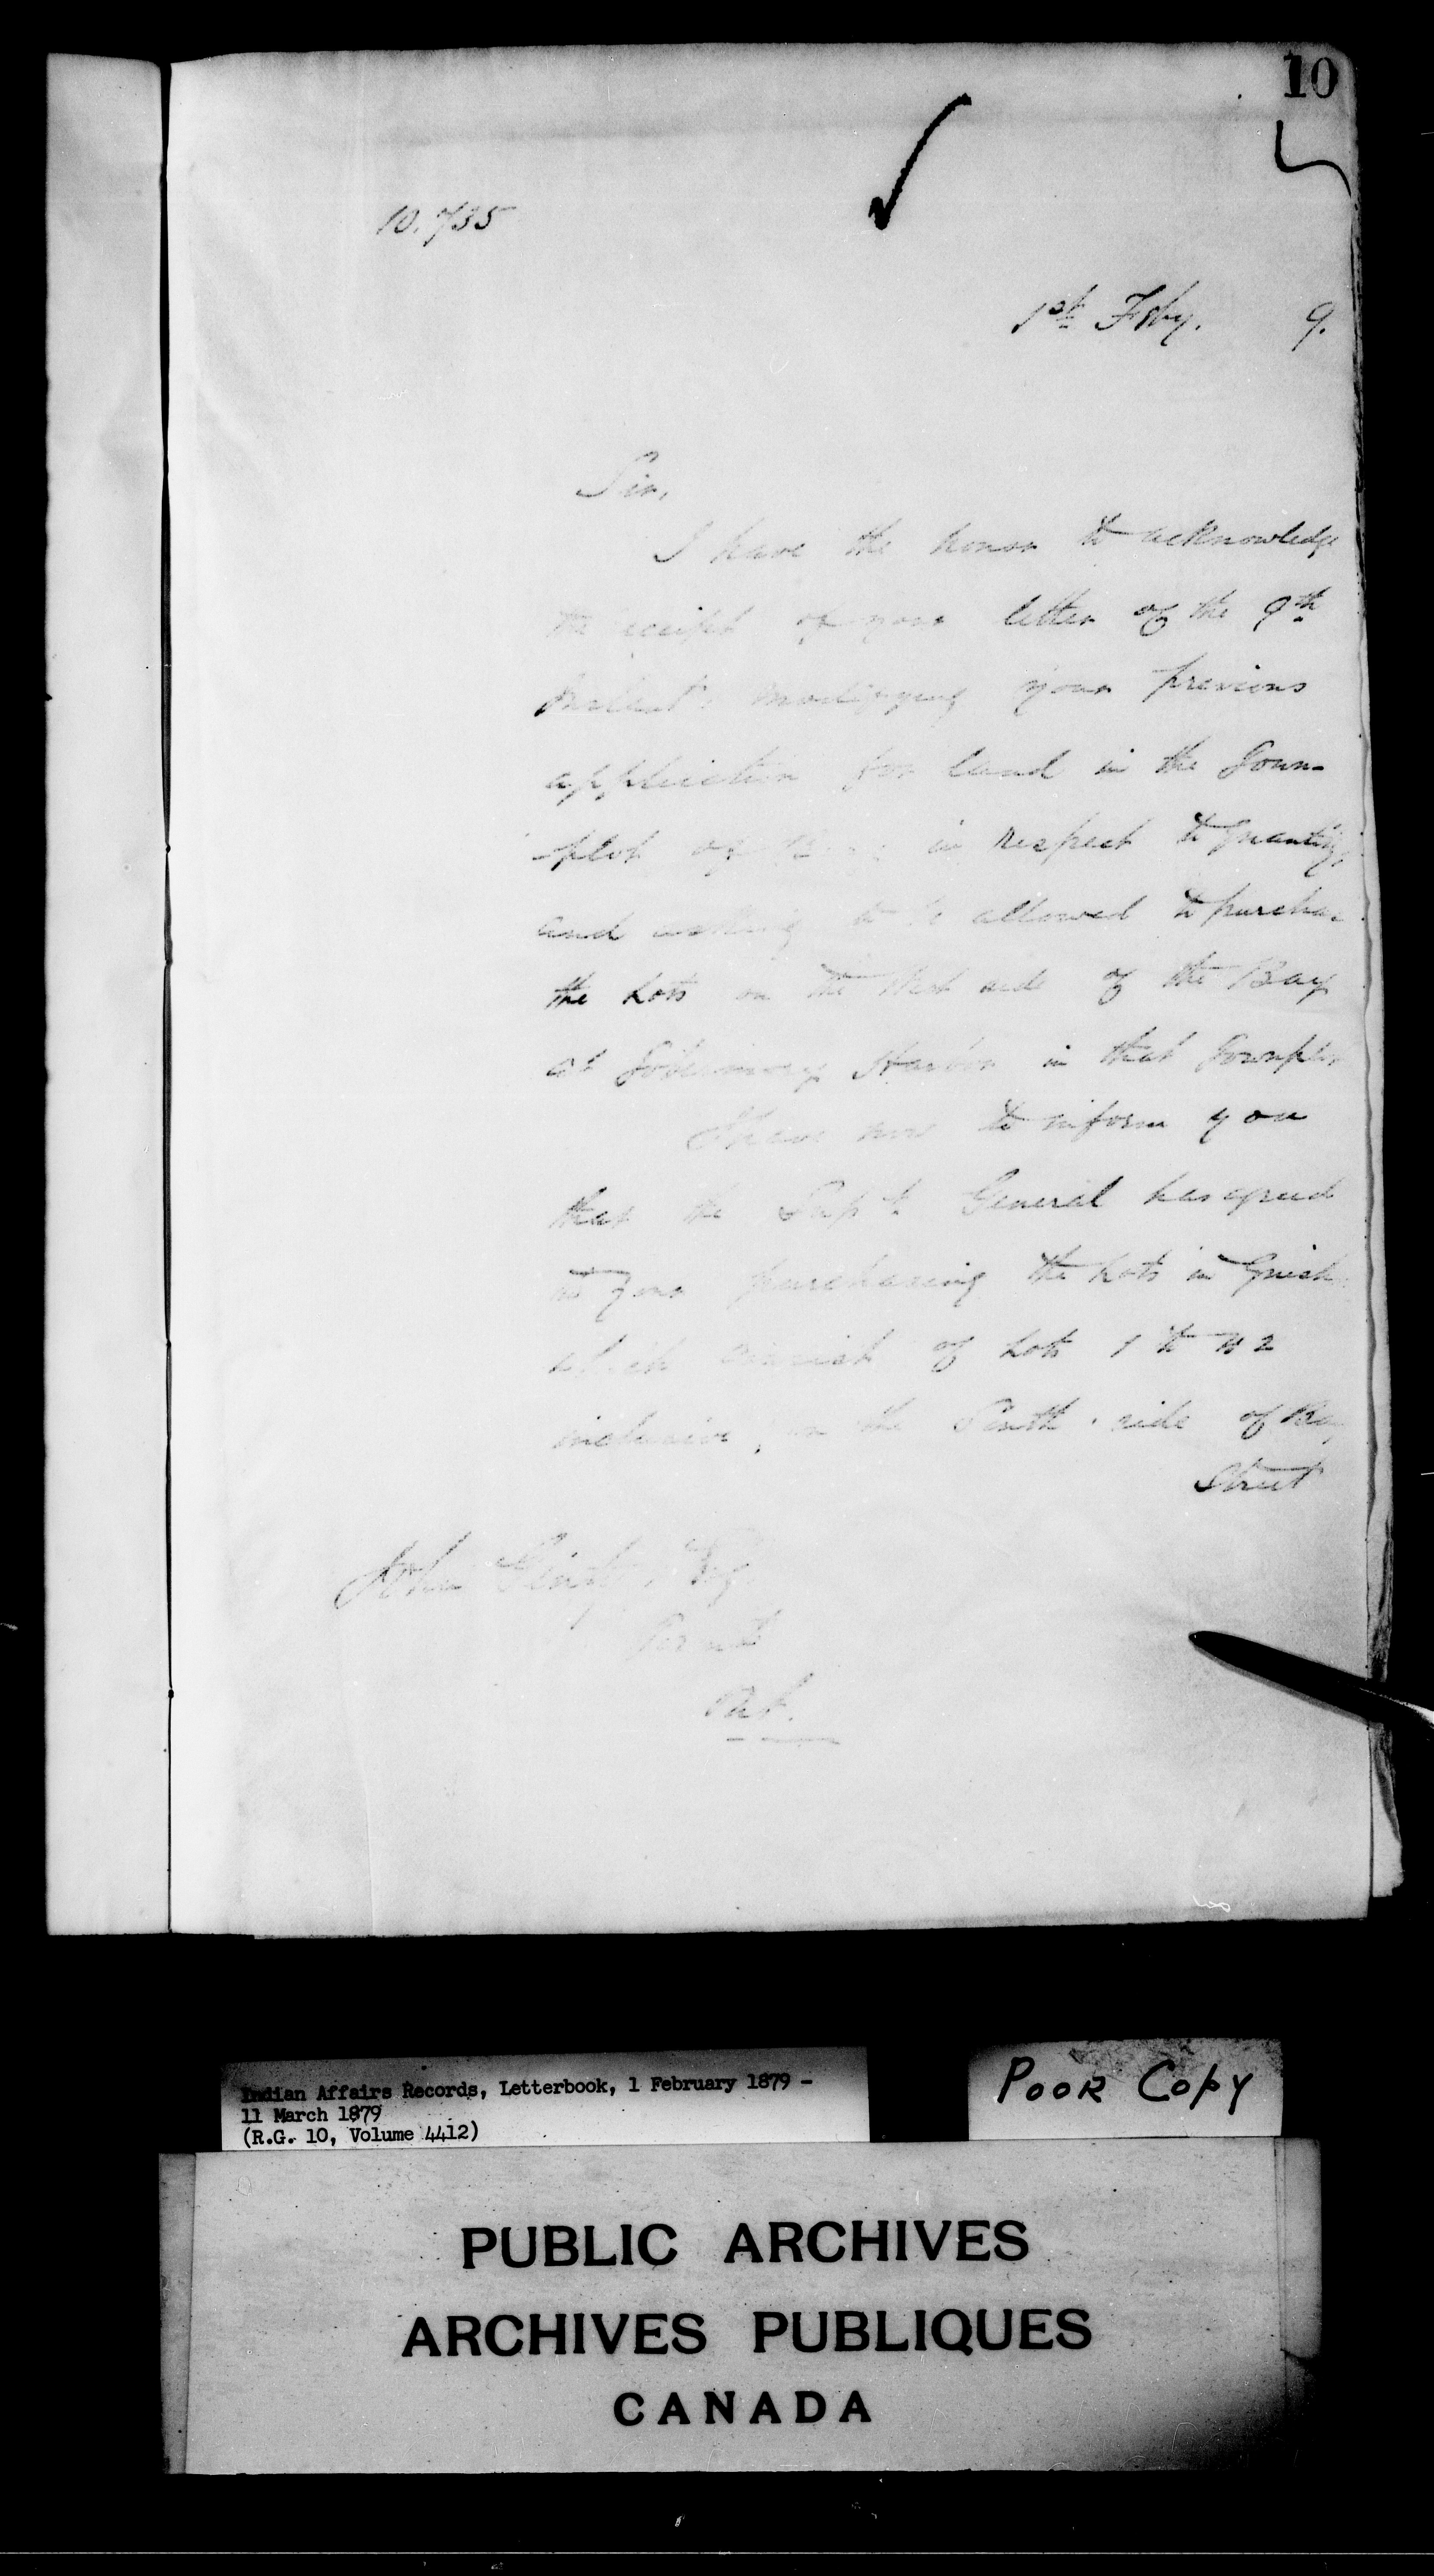 10
10.735
1st Feby. 9.
Sir,
I have the honor to acknowledge
the receipt of your letter of the 9th
modifying your previous
application for land in the Town-
plot of in respect to quantity,
and to be allowed to purcha
the Lots on the West side of the Bay
at Tobermory Harbor in that Townplot
I have now to inform you
that the Supt. General has agreed
to your purchasing the Lots in
which consist of Lots 1 to
inclusive, on the South side of Bay
Street
John Esq.
Ont.
Indian Affairs Records, Letterbook, 1 February 1879 -
11 March 1879
(R.G. 10, Volume 4412)
POOR COPY
PUBLIC ARCHIVES
ARCHIVES PUBLIQUES
CANADA